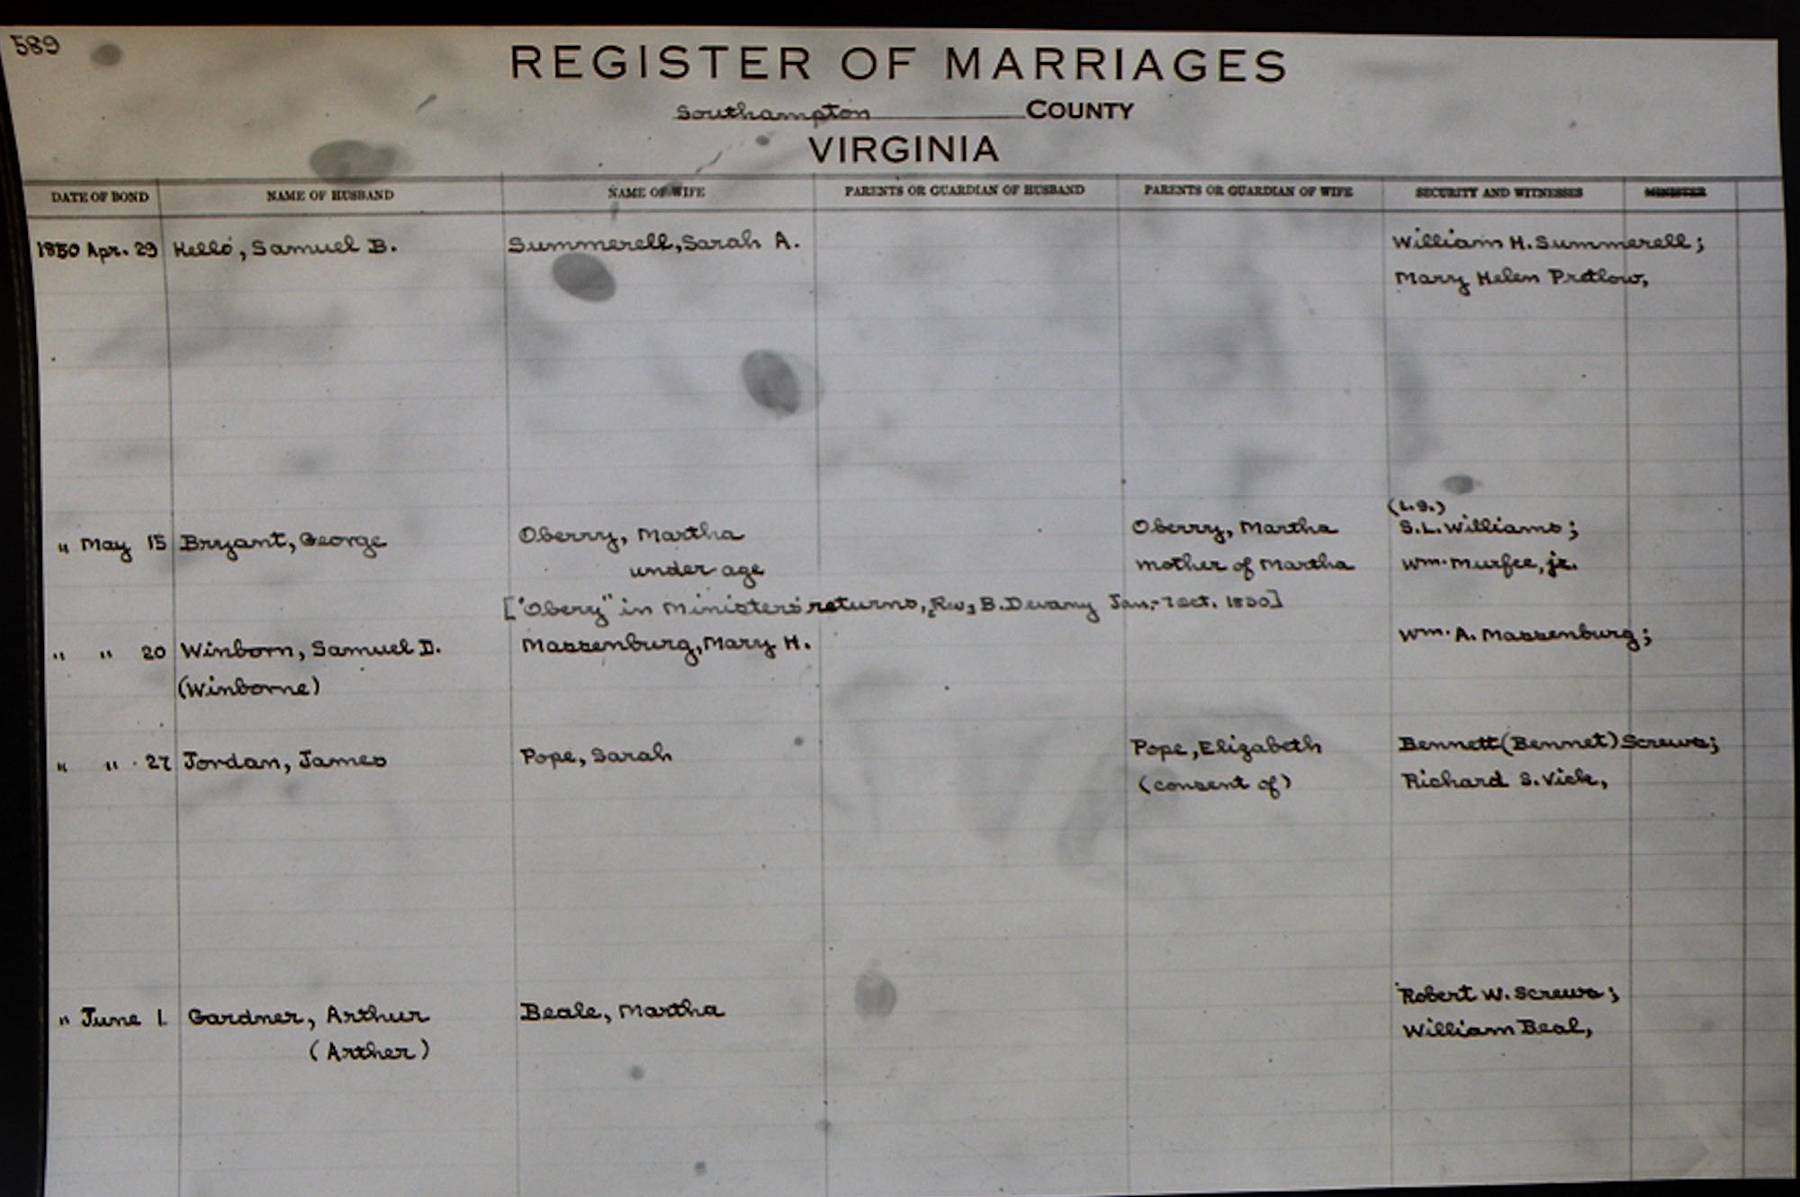 589
REGISTER OF MARRIAGES
Southampton COUNTY
VIRGINIA
DATE OF BOND NAME OF HUSBAND NAME OF WIFE PARENTS OR GUARDIAN OF HUSBAND PARENTS OR GUARDIAN OF WIFE SECURITY AND WITNESSES MINISTER
1850 Apr. 29 Kello, Samuel B. Summerell, Sarah A. William H. Summerell;
Mary Helen Pretlow,
(L.S.)
" May 15 Bryant, George Oberry, Martha Oberry, Martha S.L. Williams;
under age mother of Martha Wm. Murfee, jr.
["Obery" in Ministers' returns, Rev. B. Devany Jan.-Oct. 1850]
" " 20 Winborn, Samuel D. Massenburg, Mary H. Wm. A. Massenburg;
(Winborne)
" " 27 Jordan, James Pope, Sarah Pope, Elizabeth Bennett (Bennet) Screws;
(consent of) Richard S. Vick,
" June 1. Gardner, Arthur Beale, Martha Robert W. Screws;
(Arther) William Beal,